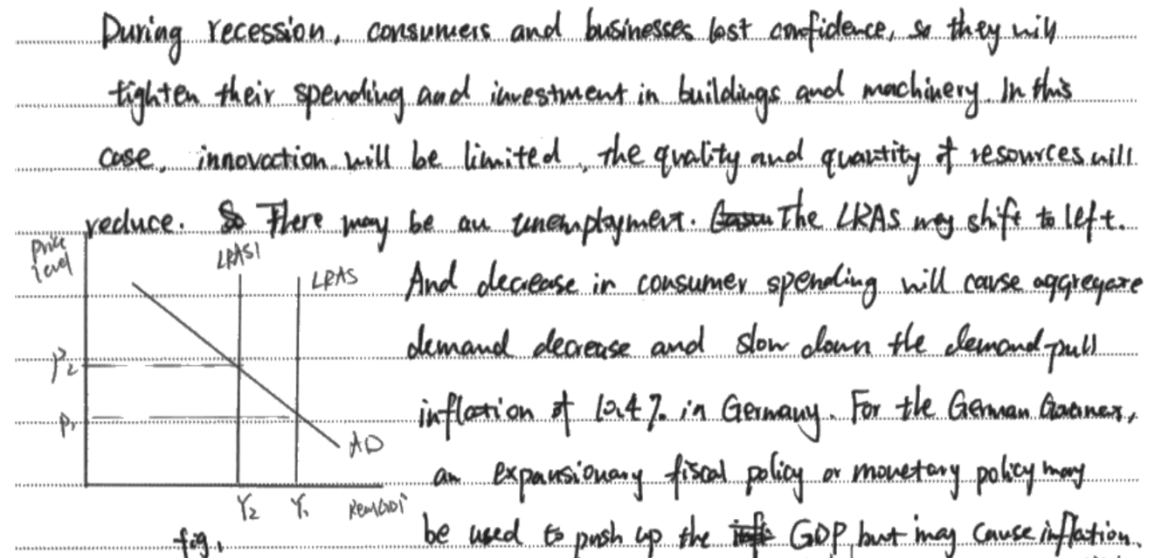 During recession, consumers and businesses lost confidence, so they will
tighten their spending and investment in buildings and machinery. In this
case, innovation will be limited, the quality and quantity of resources will
reduce. So There may be an unemployment. The LRAS may shift to left.
Price level
LRAS1
LRAS
P2
P1
AD
Y2 Y1
fig.
And decrease in consumer spending will cause aggregate
demand decrease and slow down the demand-pull
inflation of 10.4% in Germany. For the German
an expansionary fiscal policy or monetary policy may
be used to push up the GDP but may cause inflation.